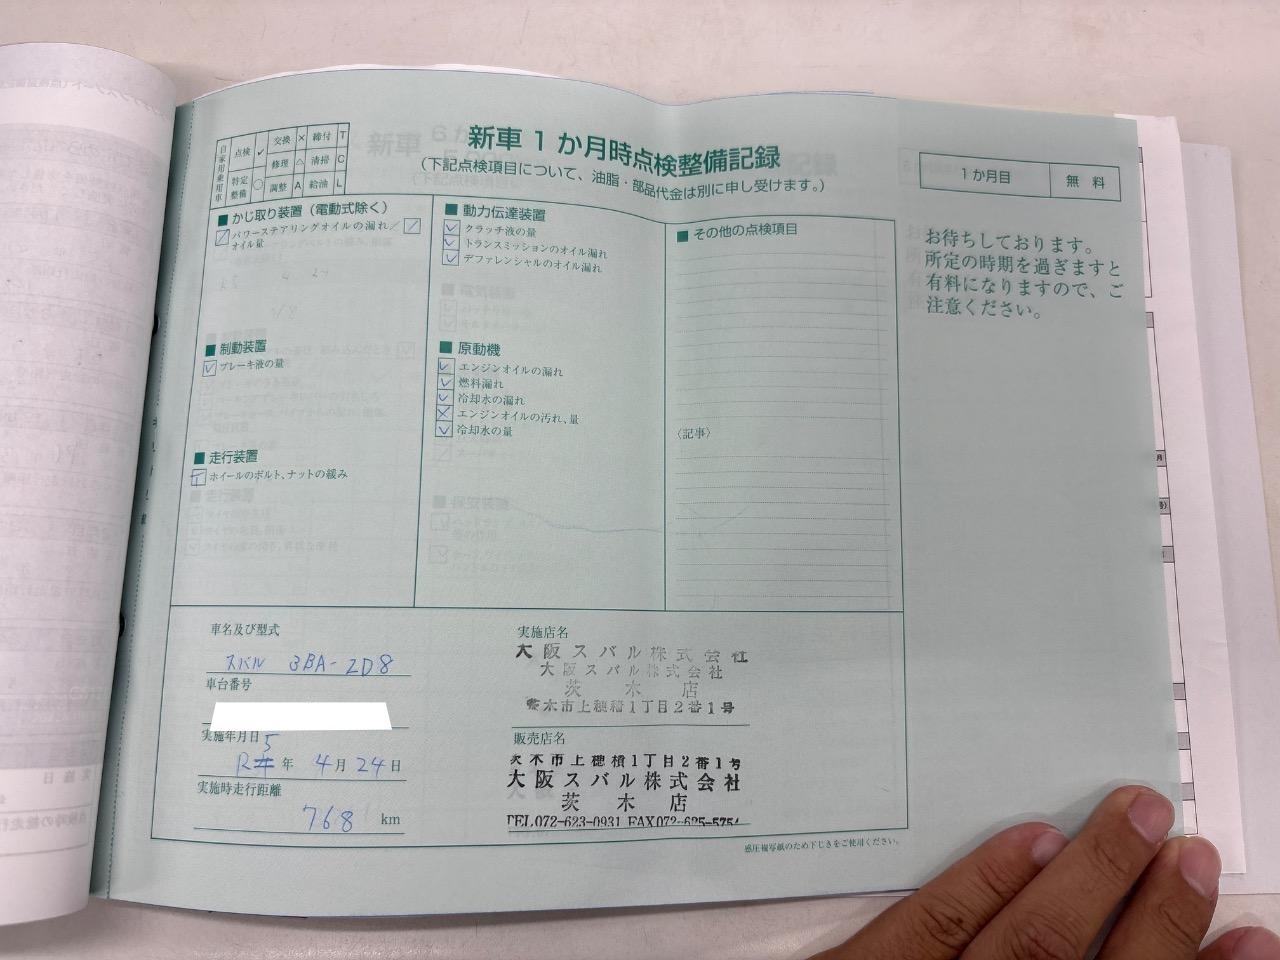 新車1か月時点検整備記録
(下記点検項目について、油脂・部品代金は別に申し受けます。)
自家用乗用車
点検 ✓ 交換 × 締付 T
修理 △ 清掃 C
特定整備 ○ 調整 A 給油 L
1か月目 無料
お待ちしております。
所定の時期を過ぎますと
有料になりますので、ご
注意ください。
■ かじ取り装置（電動式除く）
パワーステアリングオイルの漏れ／
オイル量
■ 制動装置
ブレーキ液の量
■ 走行装置
T ホイールのボルト、ナットの緩み
■ 動力伝達装置
クラッチ液の量
トランスミッションのオイル漏れ
デファレンシャルのオイル漏れ
■ 原動機
エンジンオイルの漏れ
燃料漏れ
冷却水の漏れ
エンジンオイルの汚れ、量
冷却水の量
■ その他の点検項目
〈記事〉
車名及び型式
スバル 3BA-ZD8
車台番号
実施年月日
5
R 年 4月 24日
実施時走行距離
768 km
実施店名
大阪スバル株式会社
大阪スバル株式会社
茨木店
茨木市上穂積1丁目2番1号
販売店名
茨木市上穂積1丁目2番1号
大阪スバル株式会社
茨木店
TEL072-623-0931 FAX072-625-5754
感圧複写紙のため下じきをご使用ください。